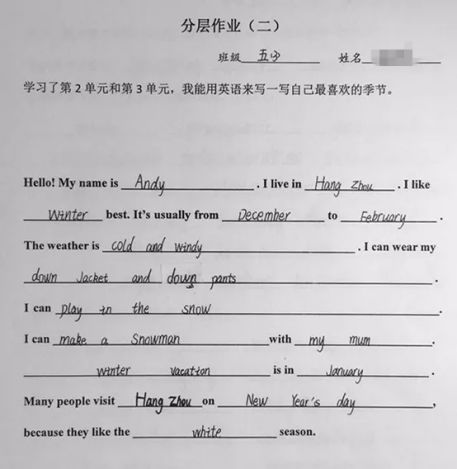 分层作业（二）
班级 五（4） 姓名
学习了第2单元和第3单元，我能用英语来写一写自己最喜欢的季节。
Hello! My name is Andy. I live in Hang Zhou. I like
Winter best. It's usually from December to February.
The weather is cold and windy. I can wear my
down Jacket and down pants.
I can play in the snow.
I can make a Snowman with my mum.
winter vacation is in January.
Many people visit Hang Zhou on New Year's day,
because they like the white season.